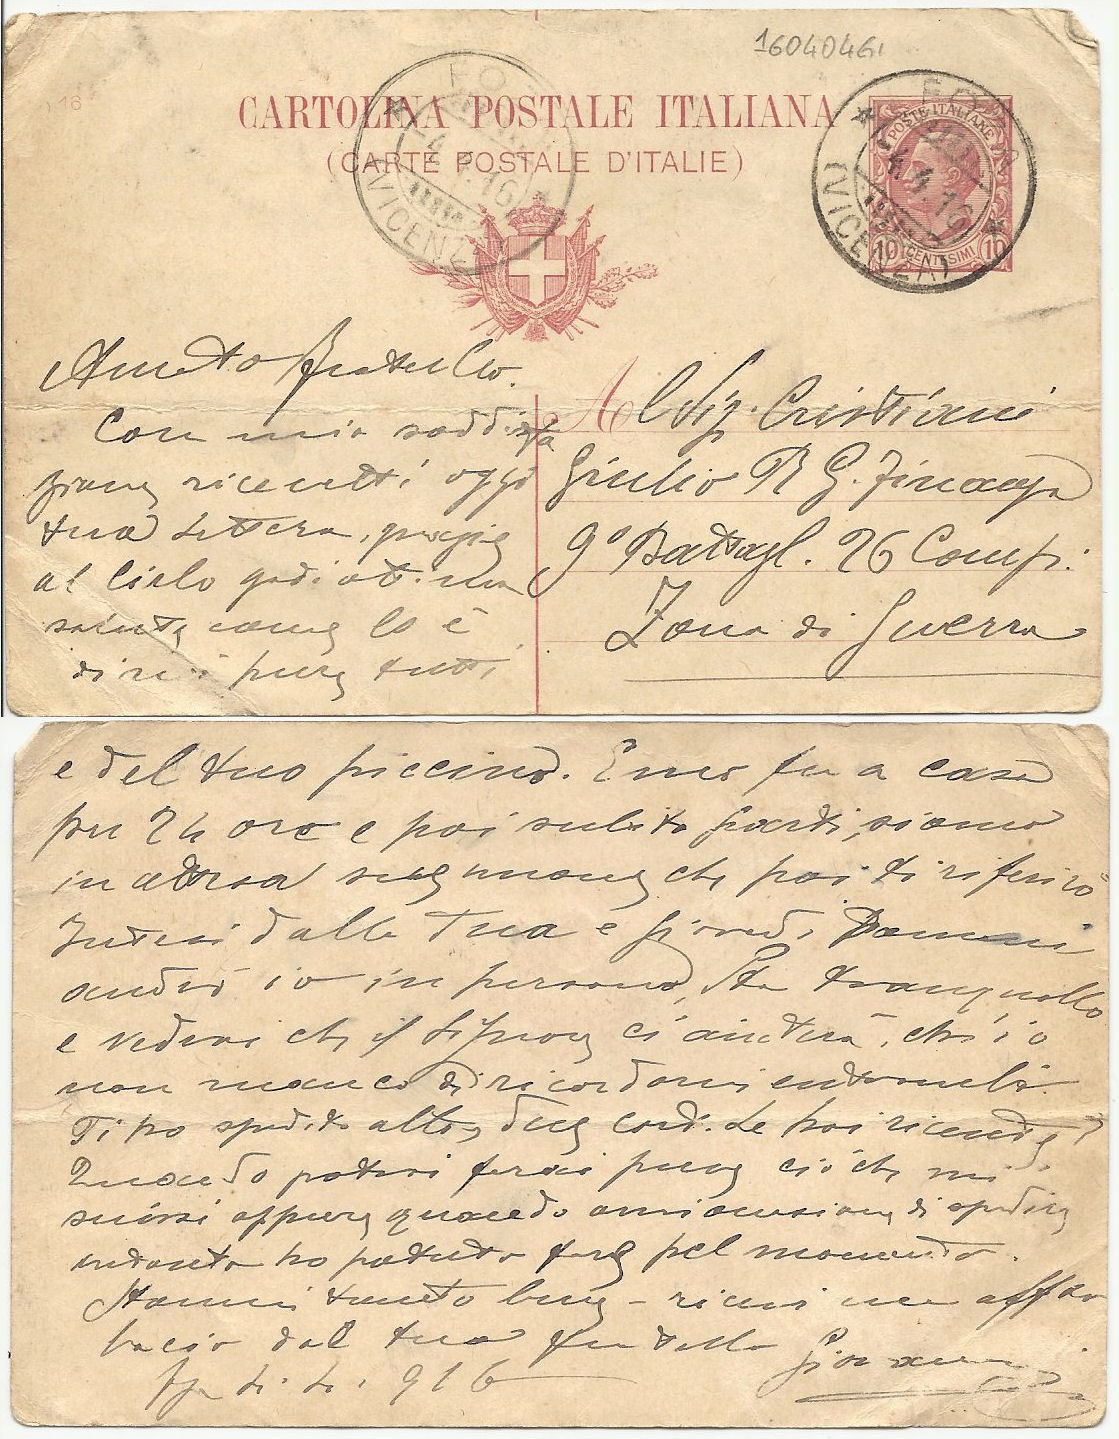 16040461
CARTOLINA POSTALE ITALIANA
(CARTE POSTALE D'ITALIE)
4.4.16
(VICENZA)
POSTE ITALIANE
4.4.16
(VICENZA)
10 CENTESIMI 10
Amato fratello.
Con mia soddisfa
zione ricevetti oggi
tua lettera, grazie
al Cielo godi ottima
salute come lo è
di noi pure tutti
Al Sig. Cristiani
Giulio R G. Finanza
9° Battagl. 26 Comp.
Zona di Guerra
e del tuo piccino. fu a casa
per 24 ore e poi subito partì, siamo
in attesa sue nuove che poi ti riferirò
Intesi dalla Tua e giovedì
andrò io in persona, Sta tranquillo
e vedrai che il Signore ci aiuterà, ch'io
non manco di ricordarvi entrambi.
Ti ho spedito altre due cart. Le hai ricevute?
Quando potrai farai pure ciò che mi
scrissi oppure quando di spedire
intanto ho potuto fare pel momento.
Stammi tanto bene - ricevi un affto
bacio dal tuo fratello Giovanni
4. 4. 916